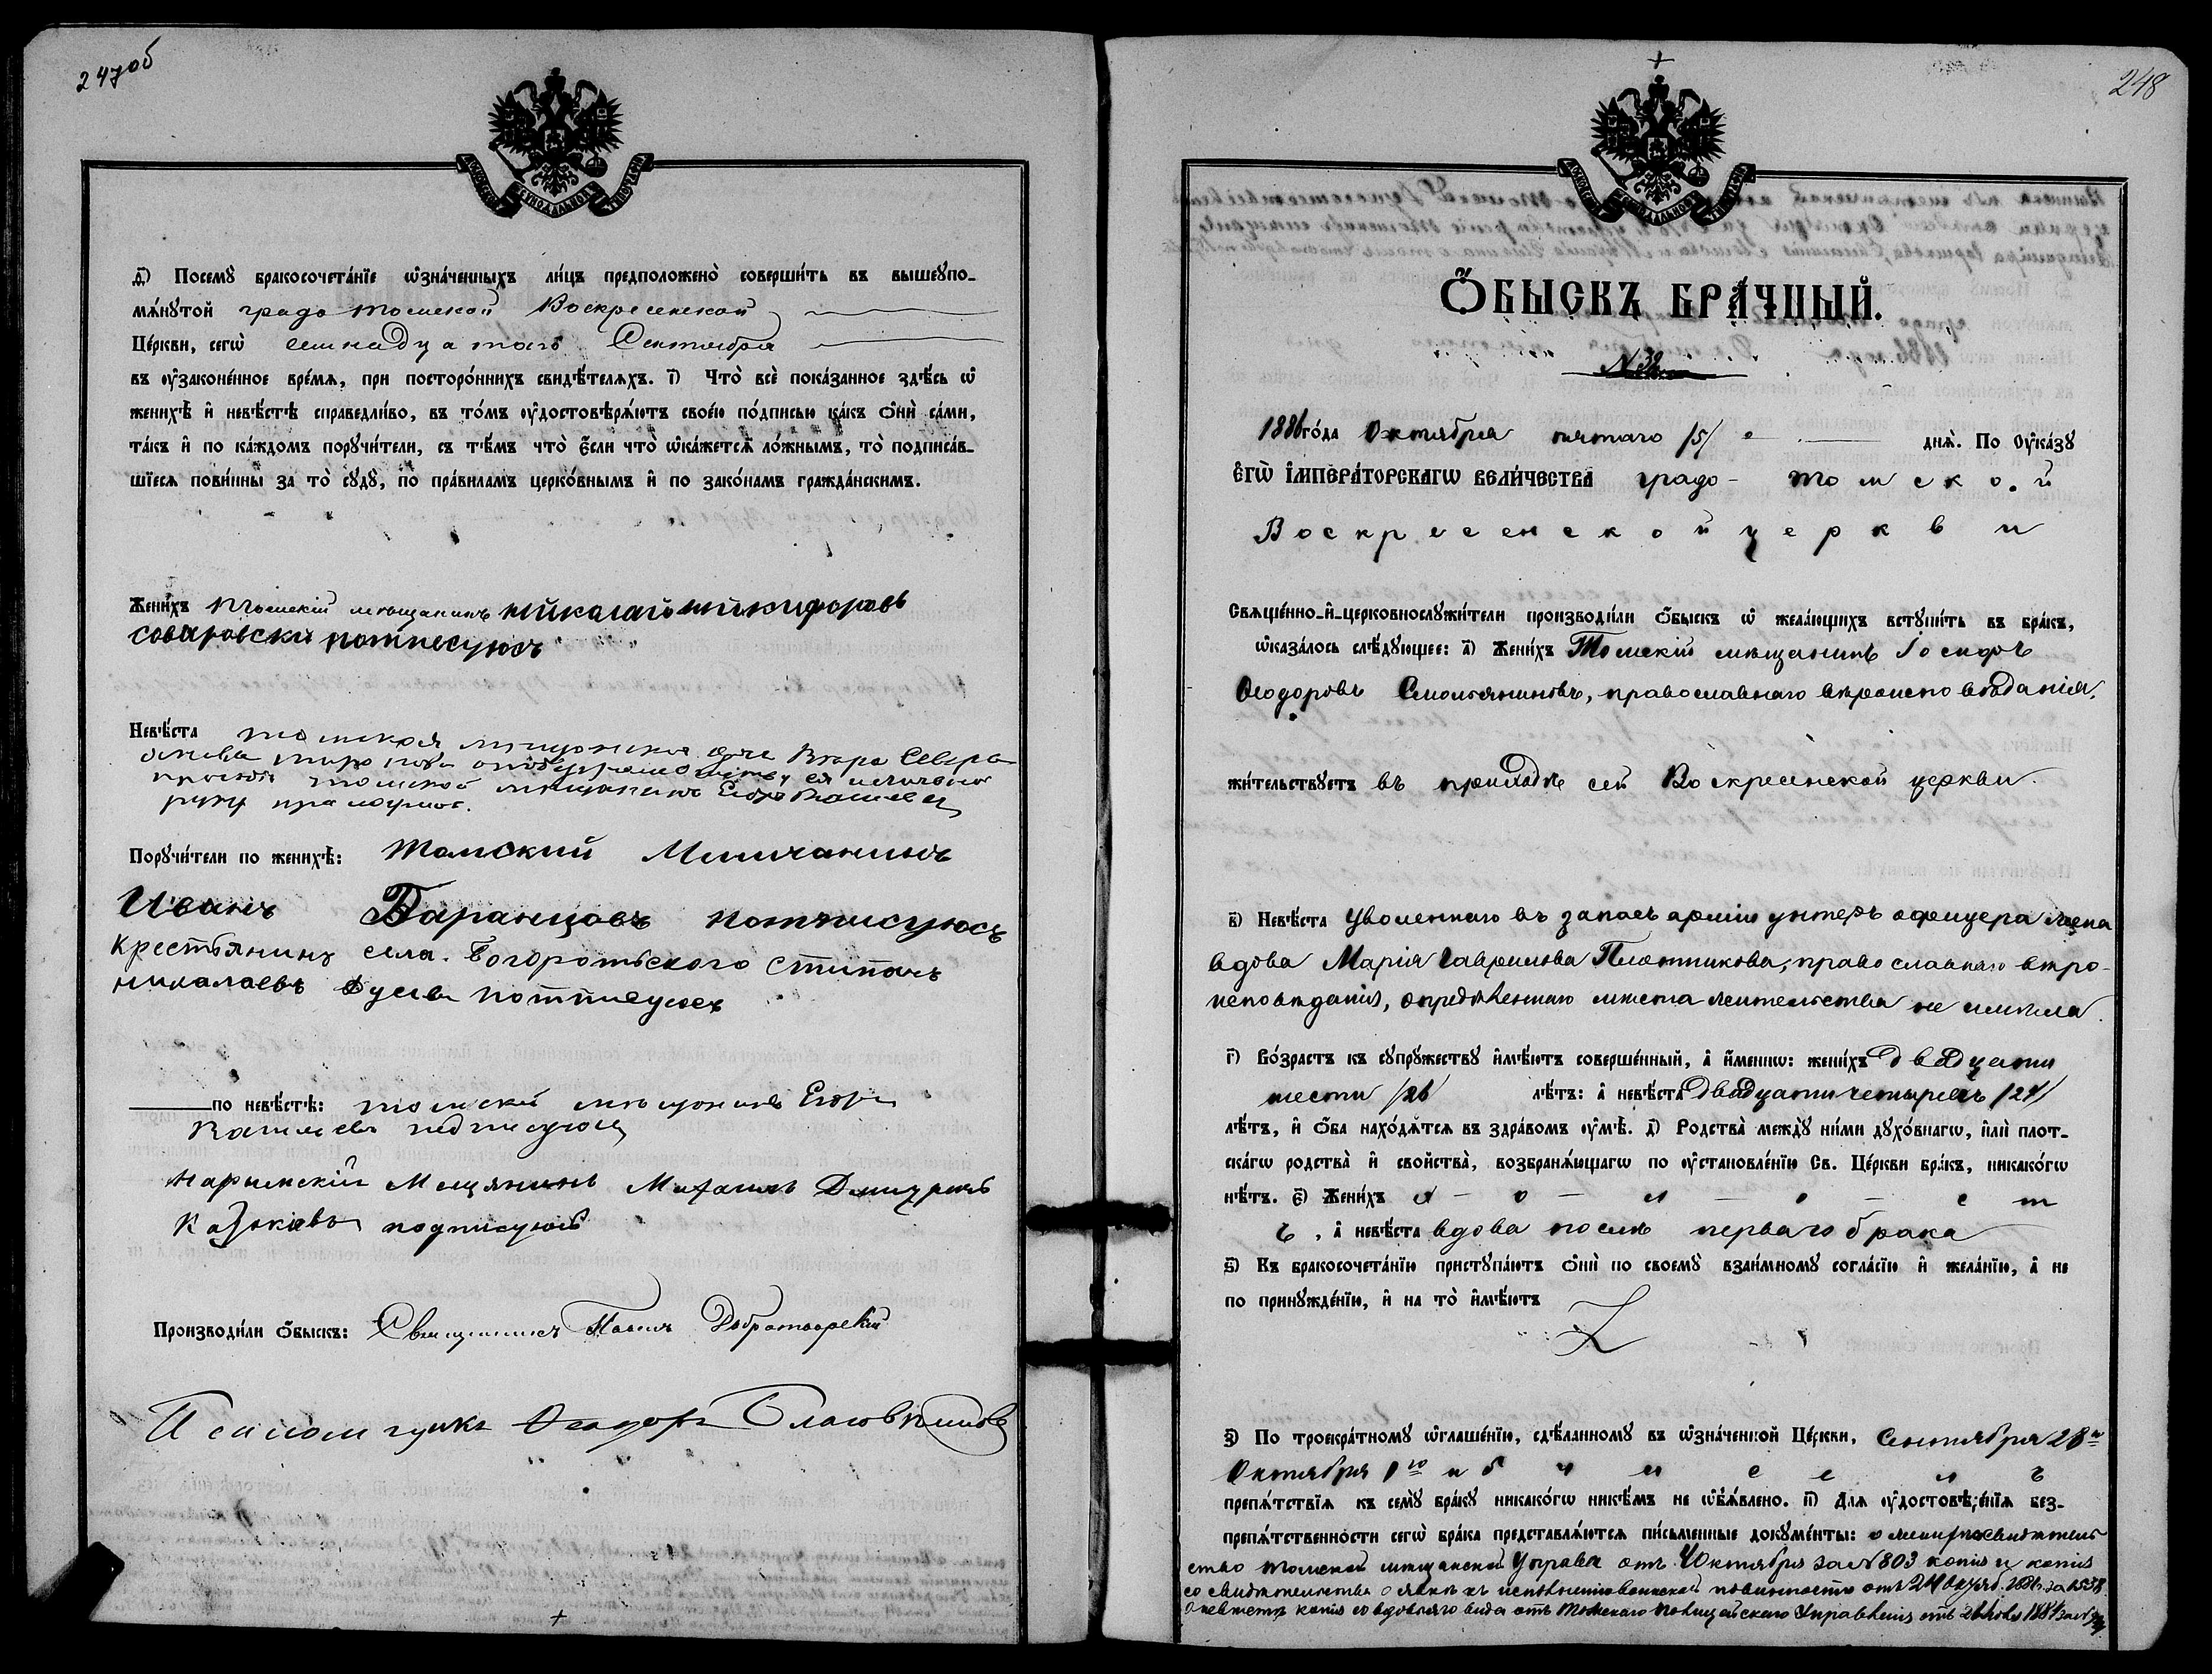 247об
МОСКОВСК. СѴНОДАЛЬНОЙ ТИПОГРАФІИ
д҃) Посемꙋ бракосочета́нїе ѡ҆зна́ченныхъ ли́цъ предположено̀ соверши́ть въ вышеꙋпо-
мѧ́нꙋтой градо Томской Воскресенской
Це́ркви, сегѡ̀ семнадцатаго Сентября
въ ᲂу҆зако́ненное вре́мѧ, при посторо́ннихъ свидѣ́телѧхъ. ѳ҃) Что̀ всѐ пока́занное здѣ́сь ѡ҆
женихѣ̀ и҆ невѣ́стѣ справедли́во, въ то́мъ ᲂу҆достовѣрѧ́ютъ свое́ю по́дписью ка́къ ѻ҆нѝ са́ми,
та́къ и҆ по ка́ждомъ порꙋчи́тели, съ тѣ́мъ что̀ є҆́сли что̀ ѡ҆ка́жетсѧ ло́жнымъ, то̀ подписа́в-
шїесѧ пови́нны за то̀ сꙋдꙋ̀, по пра́виламъ церко́внымъ и҆ по зако́намъ гражда́нскимъ.
Жени́хъ Томскій мещанинъ Нйкалай Нйкифоровъ
потпесуюсъ
Невѣ́ста томская
томской мещанинъ Егоръ
руку приложилъ.
Порꙋчи́тели по женихѣ̀: Томский Мещанинъ
Иванъ Баранцовъ потписуюсъ
Крестьянинъ села Богоротьского Стипанъ
николаевъ потписуюсъ
по невѣ́стѣ: томскій мещанинъ Егоръ
подписуюсь
Нарымскій Мещянинъ Михаилъ
подписуюсь
Производи́ли ѻ҆́быскъ: Священникъ Павелъ Добротворскій
Псаломщикъ Ѳеодоръ
248
МОСКОВСК. СѴНОДАЛЬНОЙ ТИПОГРАФІИ
Ѻ҆́БЫСКЪ БРА́ЧНЫЙ.
№ 38
1886 го́да Октября пятаго /5/ днѧ̀. По Оу҆ка́зꙋ
Е҆ГѠ̀ И҆МПЕРА́ТОРСКАГѠ ВЕЛИ́ЧЕСТВА градо-Томской
Воскресенской церкви
Свѧще́нно-и҆-церковнослꙋжи́тели производи́ли ѻ҆́быскъ ѡ҆ жела́ющихъ встꙋпи́ть въ бра́къ,
ѡ҆каза́лось слѣ́дꙋющее: а҃) Жени́хъ Томскій мѣщанинъ
Ѳеодоровъ Смольяниновъ, православнаго вѣроисповѣданія,
жи́тельствꙋетъ въ приходѣ сей Воскресенской церкви
в҃) Невѣ́ста уволеннаго въ запасъ арміи унтеръ офицера жена
вдова Марія Гаврилова Плотникова, православнаго вѣро-
исповѣданія, опредѣленнаго мѣста жительства не имѣла.
г҃) Во́зрастъ къ сꙋпрꙋ́жествꙋ и҆мѣ́ютъ соверше́нный, а҆ и҆́меннѡ: жени́хъ двадцати
шести /26/ лѣ́тъ: а҆ невѣ́ста двадцати четырехъ /24/
лѣ́тъ, и҆ ѻ҆́ба нахо́дѧтсѧ въ здра́вомъ ᲂу҆мѣ̀. д҃) Родства̀ междꙋ̀ ни́ми дꙋхо́внагѡ, и҆лѝ плот-
ска́гѡ родства̀ и҆ свойства̀, возбранѧ́ющагѡ по ᲂу҆становле́нїю Св. Це́ркви бра́къ, никако́гѡ
нѣ́тъ. є҃) Жени́хъ х о л о с т
ъ, а҆ невѣ́ста вдова послѣ перваго брака
ѕ҃) Къ бракосочета́нїю пристꙋпа́ютъ ѻ҆нѝ по своемꙋ̀ взаи́мномꙋ согла́сїю и҆ жела́нїю, а҆ не
по принꙋжде́нїю, и҆ на то̀ и҆мѣ́ютъ
з҃) По троекра́тномꙋ ѡ҆глаше́нїю, сдѣ́ланномꙋ въ ѡ҆зна́ченной Це́ркви, Сентября 28го
Октября 1го и 5 ч и с е л ъ
препѧ́тствїѧ къ семꙋ̀ бра́кꙋ никако́гѡ никѣ́мъ не ѡ҆б̾ѧ́влено. и҃) Длѧ ᲂу҆достовѣ́ренїѧ без-
препѧ́тственности сегѡ̀ бра́ка представлѧ́ютсѧ пи́сьменные докꙋме́нты: о женихѣ свидѣтель
ство Томской мѣщанской Управы отъ 4 Октября за № 803 копія и копія
со свидѣтельства о явкѣ къ исполненію воинской повинности отъ
О невѣстѣ копія со вдовьяго вида отъ Томскаго Полицейскаго Управленія отъ